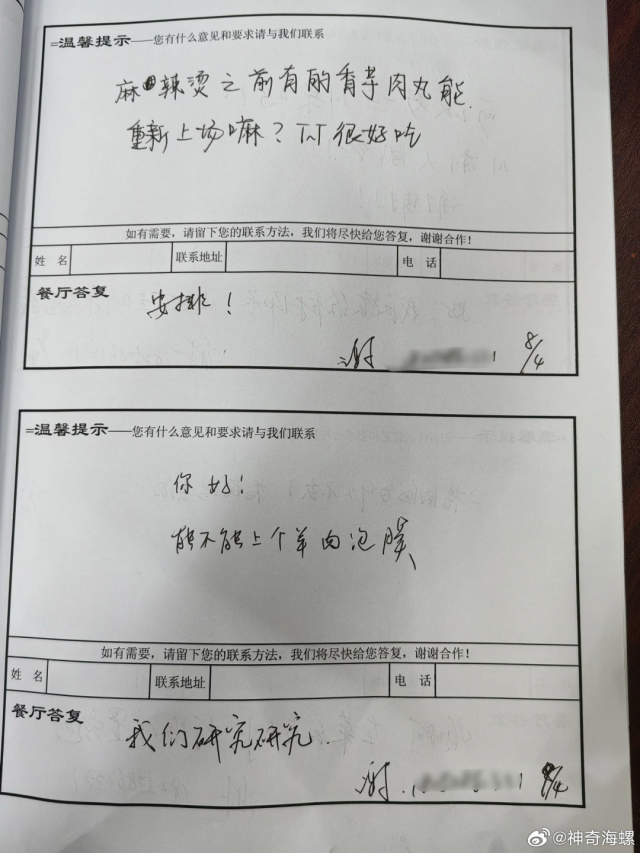 =温馨提示——您有什么意见和要求请与我们联系
麻辣烫之前有的香芋肉丸能
重新上场嘛？TnT 很好吃
如有需要，请留下您的联系方法，我们将尽快给您答复，谢谢合作！
姓 名 联系地址 电 话
餐厅答复
安排！
谢 8/4
=温馨提示——您有什么意见和要求请与我们联系
你好！
能不能上个羊肉泡膜
如有需要，请留下您的联系方法，我们将尽快给您答复，谢谢合作！
姓 名 联系地址 电 话
餐厅答复
我们研究研究.
谢 8/4
@神奇海螺